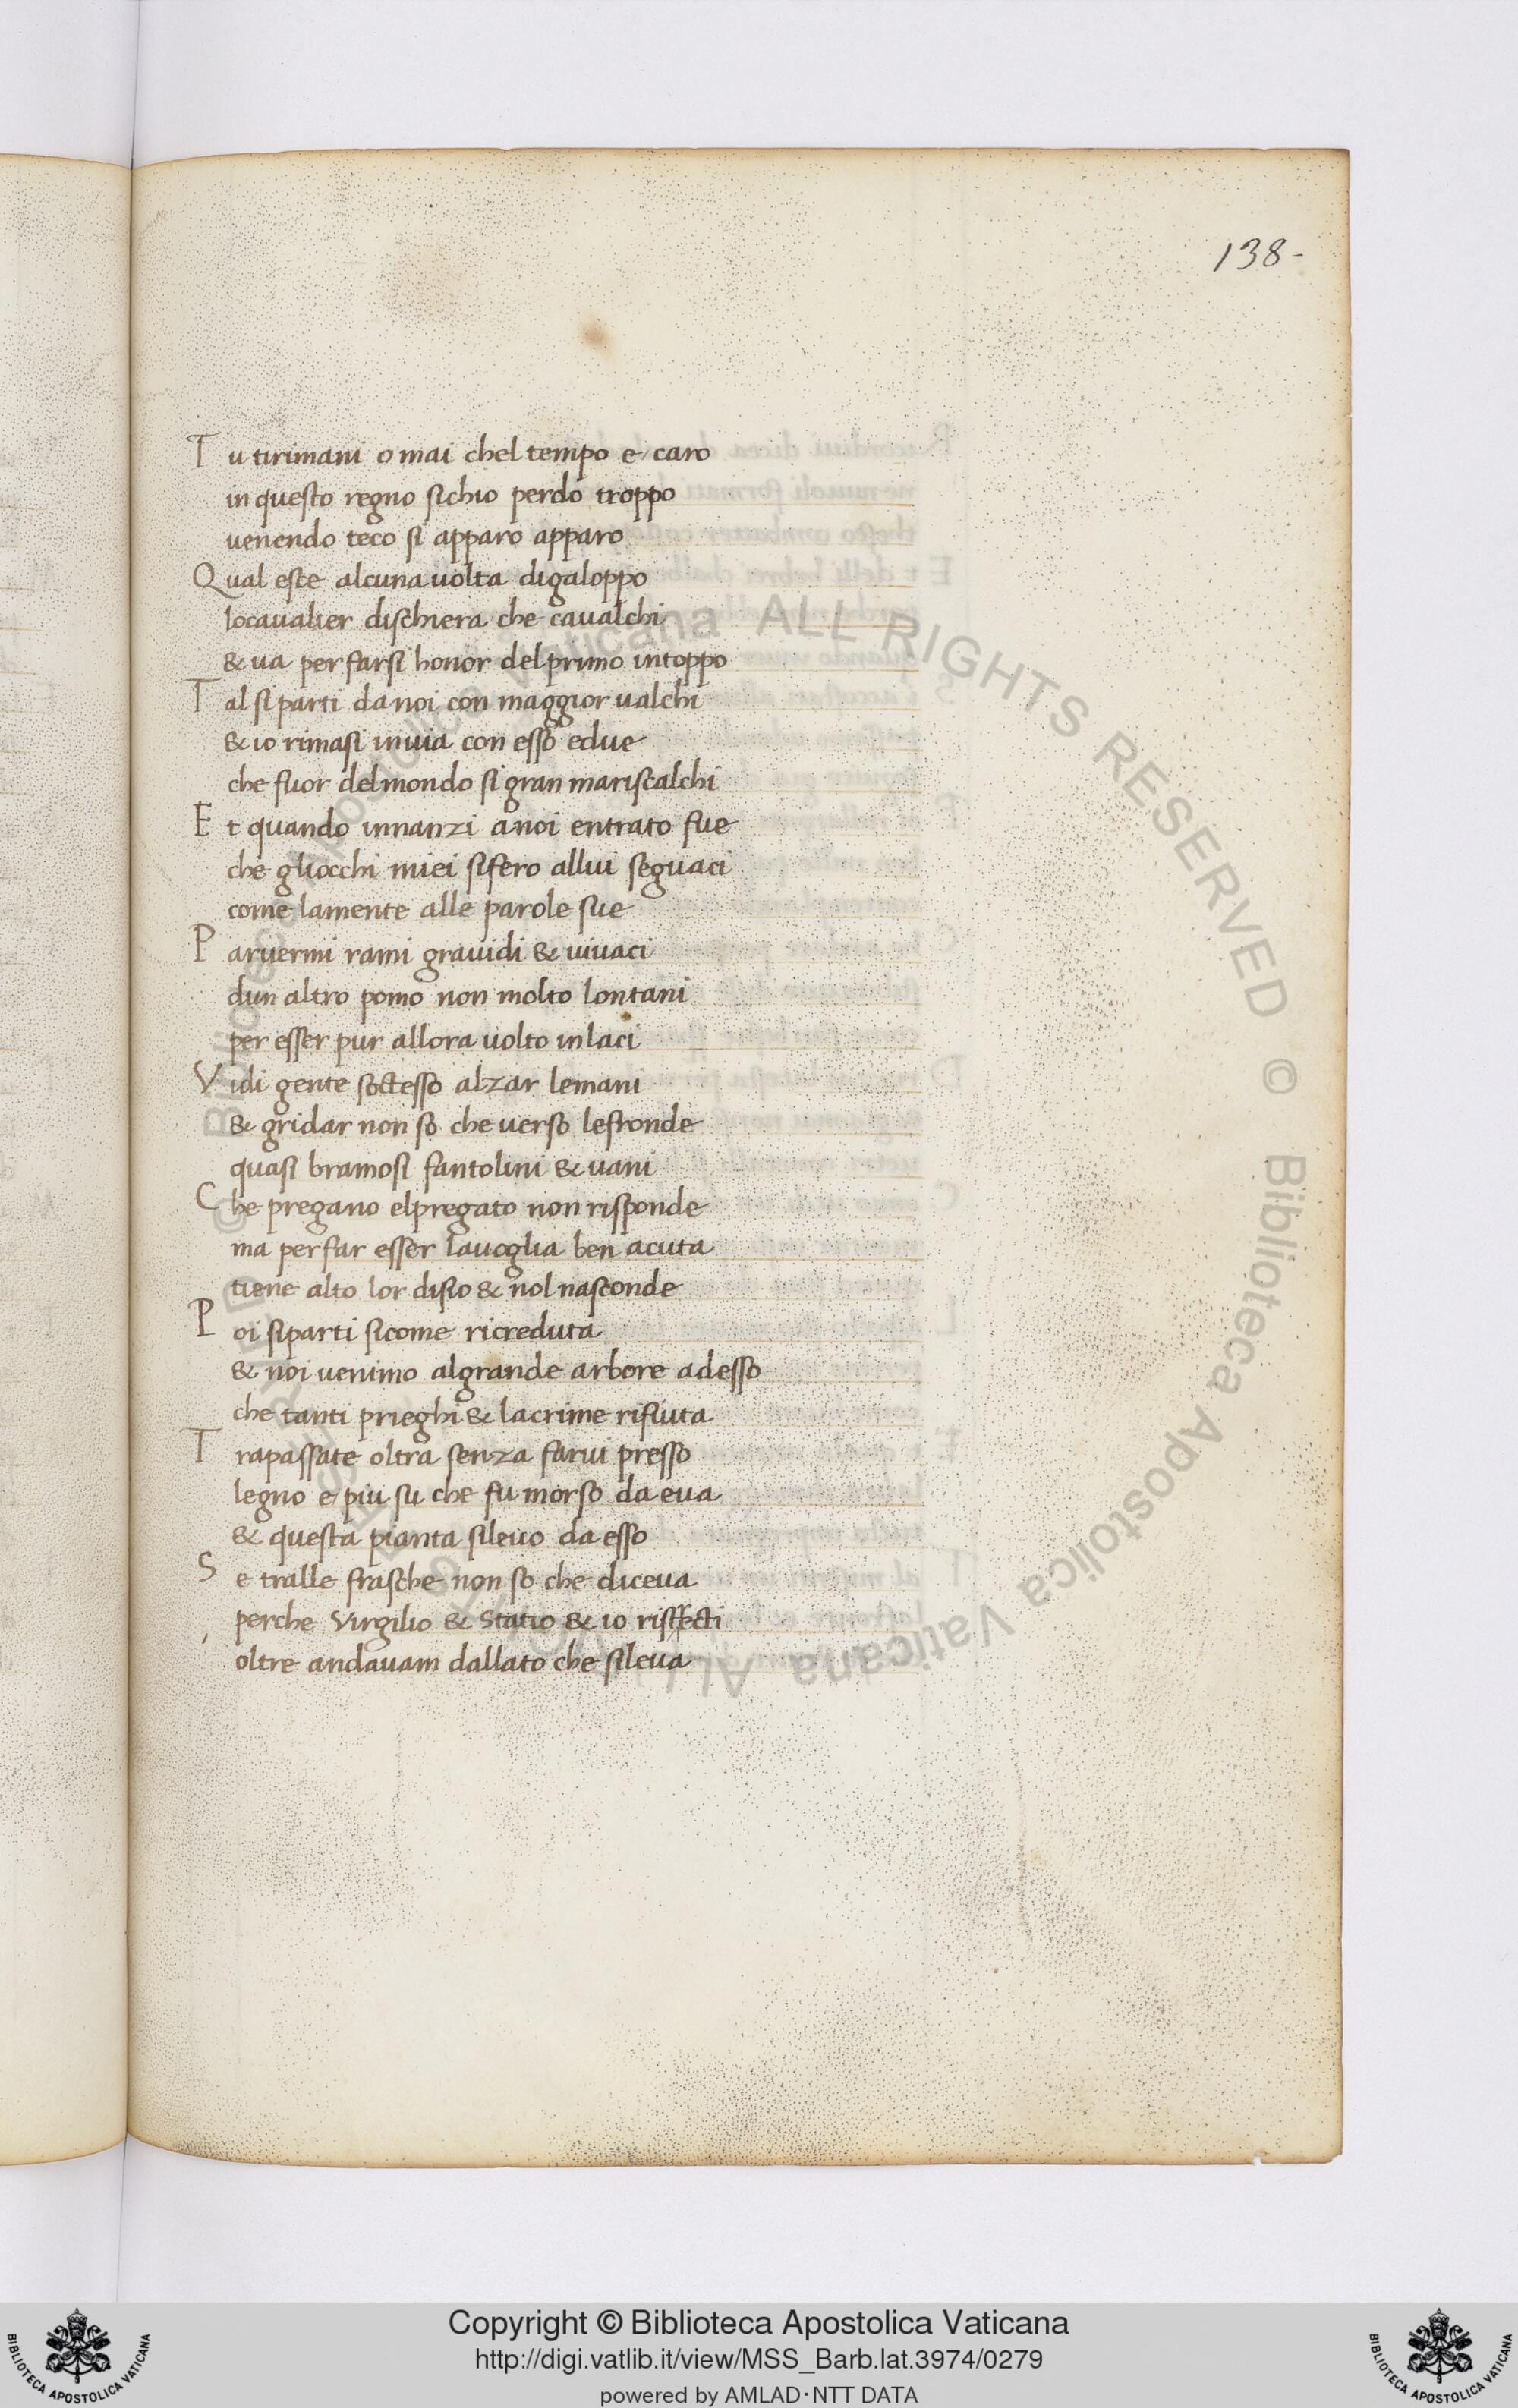 138-
Tu tirimani o mai chel tempo e caro
in questo regno sichio perdo troppo
uenendo teco si apparo apparo
Qual esce alcuna uolta digaloppo
locaualier dischiera che caualchi
& ua perfarsi honor delprimo intoppo
Tal siparti danoi con maggior ualchi
& io rimasi inuia con esso edue
che fuor delmondo sigran mariscalchi
Et quando innanzi anoi entrato fue
che gliocchi miei sifero allui seguaci
come lamente alle parole sue
Paruermi rami grauidi & uiuaci
dun altro pomo non molto lontani
per esser pur allora uolto inlaci
Vidi gente soctesso alzar lemani
& gridar non so che uerso lefronde
quasi bramosi fantolini & uani
Che pregano elpregato non risponde
ma perfar esser lauoglia ben acuta
tiene alto lor disio & nol nasconde
Poi siparti sicome ricreduta
& noi uenimo algrande arbore adesso
che tanti prieghi & lacrime rifiuta
Trapassate oltra senza farui presso
legno e piu su che fu morso da eua
& questa pianta sileuo da esso
Se tralle frasche non so che diceua
perche Virgilio & Statio & io ristrecti
oltre andauam dallato che sileua
© Biblioteca Apostolica Vaticana ALL RIGHTS RESERVED © Biblioteca Apostolica Vaticana ALL RIGHTS RESERVED
Copyright © Biblioteca Apostolica Vaticana
http://digi.vatlib.it/view/MSS_Barb.lat.3974/0279
powered by AMLAD·NTT DATA
BIBLIOTECA APOSTOLICA VATICANA
BIBLIOTECA APOSTOLICA VATICANA